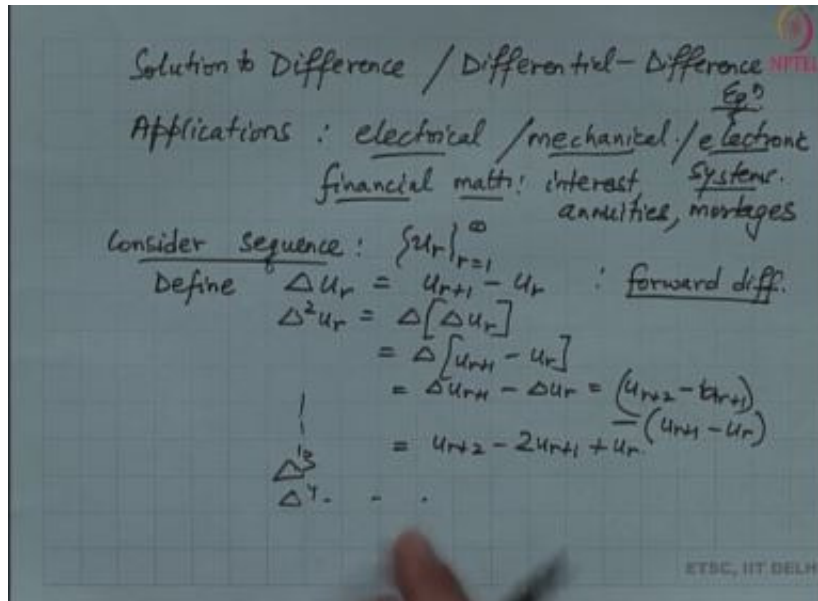 NPTEL
Solution to Difference / Differentiel - Difference
Eqn
Applications : electrical / mechanical / electronc
financial math : interest, systems.
annuities, mortages
Consider sequence : {u_r}_{r=1}^∞
Define Δu_r = u_{r+1} - u_r : forward diff.
Δ²u_r = Δ[Δu_r]
= Δ[u_{r+1} - u_r]
= Δu_{r+1} - Δu_r = (u_{r+2} - u_{r+1})
- (u_{r+1} - u_r)
= u_{r+2} - 2u_{r+1} + u_r.
Δ³
Δ⁴ - - .
ETSC, IIT DELH